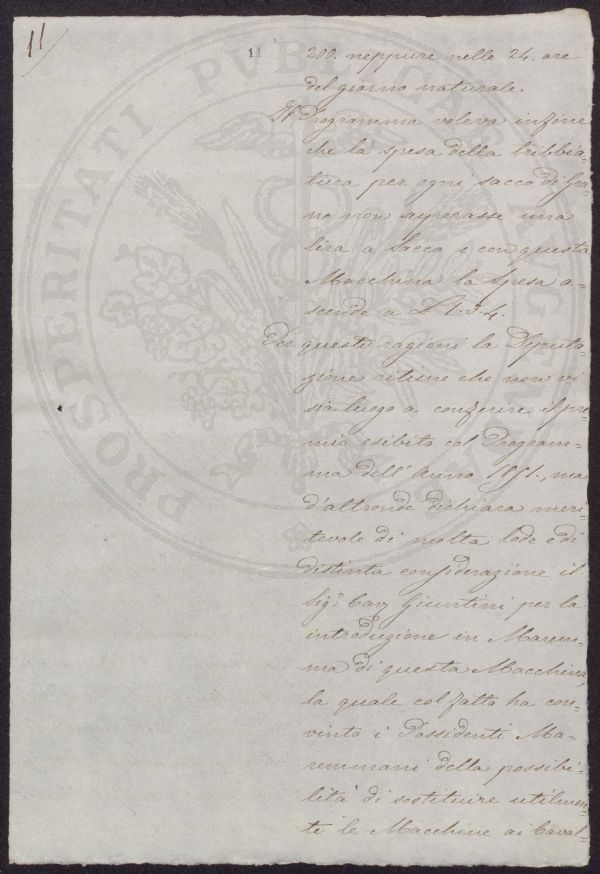 11
11
300. neppure nelle 24. ore
del giorno naturale.
Il Programma voleva infine
che la spesa della tribbia=
tura per ogni sacco di Gra=
no non superasse una
lira a Sacco e con questa
Macchina la Spesa a=
scende a L 1.3.4.
Per queste ragioni la Deputa=
zione ritiene che non vi
sia luogo a conferire il pre=
mio esibito col Program=
ma dell' Anno 1851., ma
d'altronde dichiara meri=
tevole di molta lode e di
distinta considerazione il
Sigr. Cav Giuntini per la
introduzione in Marem=
ma di questa Macchina,
la quale col fatto ha con=
vinto i Possidenti Ma=
remmani della possibi=
lità di sostituire utilmen=
te le Macchine ai Caval=
PROSPERITATI PVBLICAE AVGENDAE